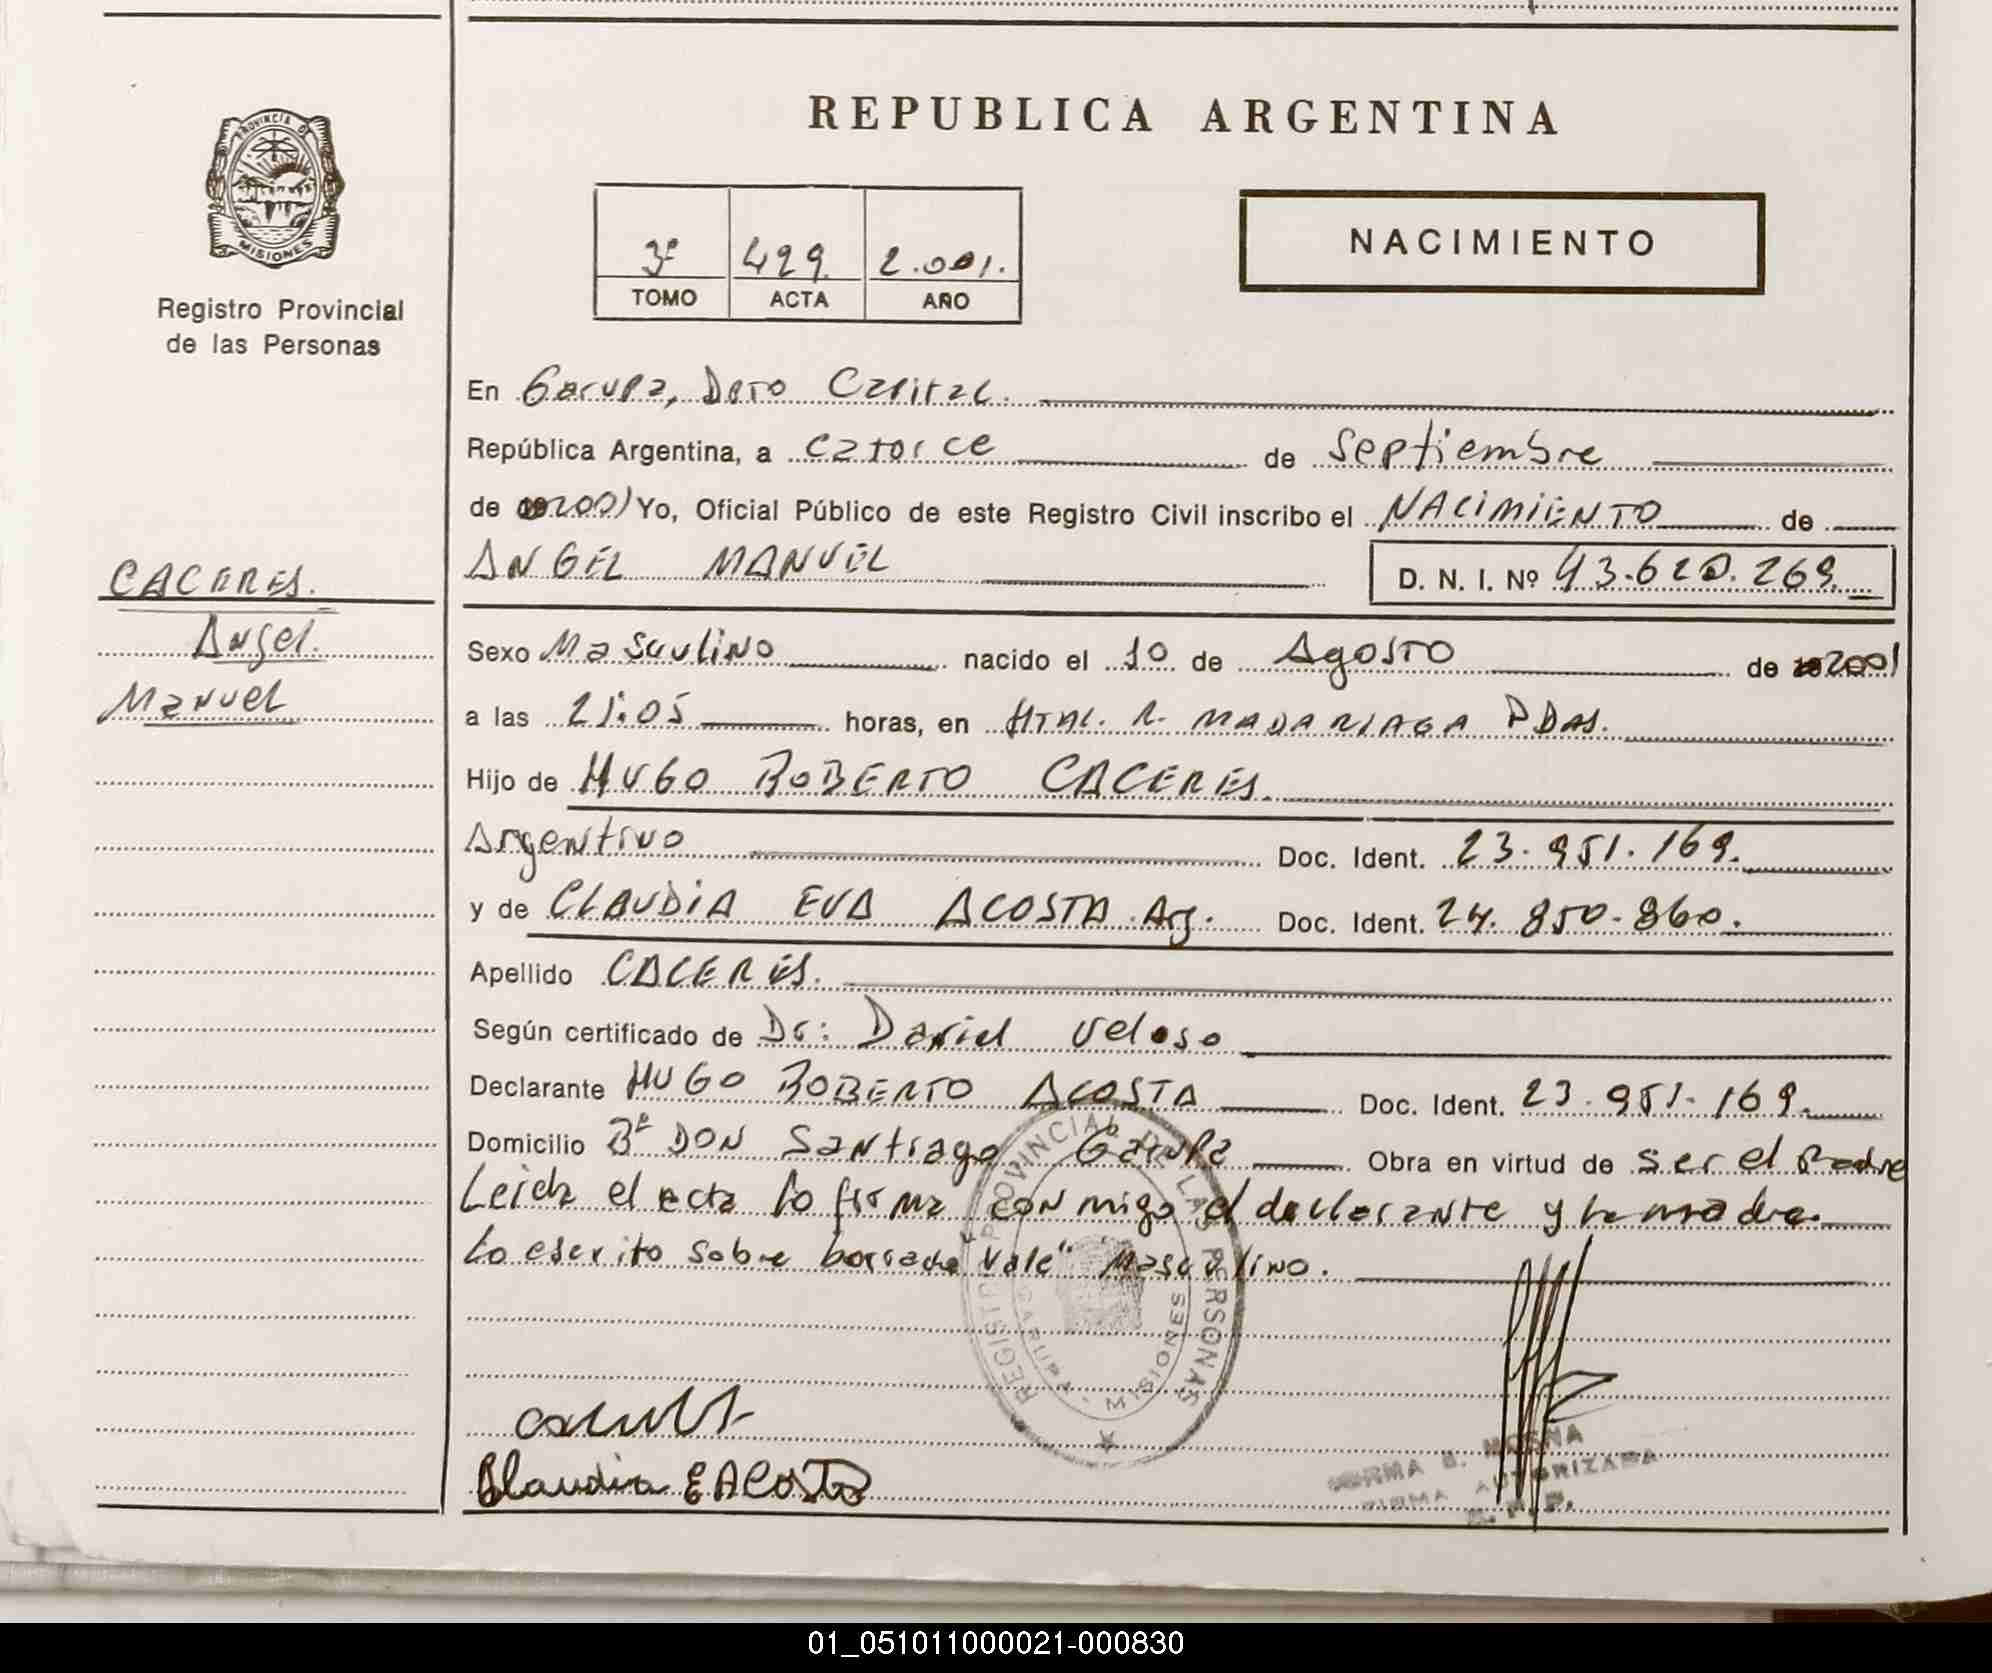 REPUBLICA ARGENTINA
PROVINCIA DE
MISIONES
Registro Provincial
de las Personas
3º 429 2.001.
TOMO ACTA AÑO
NACIMIENTO
En Garupa, Dpto Capital.
República Argentina, a catorce de Septiembre
de 2001 Yo, Oficial Público de este Registro Civil inscribo el NACIMIENTO de
ANGEL MANUEL D. N. I. Nº 43.620.269.
CACERES.
Angel.
Manuel
Sexo Masculino nacido el 10 de Agosto de 2001
a las 21:05 horas, en HTAL. R. MADARIAGA PDAS.
Hijo de HUGO ROBERTO CACERES.
Argentino Doc. Ident. 23.951.169.
y de CLAUDIA EVA ACOSTA Arg. Doc. Ident. 24.850.860.
Apellido CACERES.
Según certificado de Dr: Daniel Veloso
Declarante HUGO ROBERTO ACOSTA Doc. Ident. 23.951.169.
Domicilio Bº DON Santiago Garupa Obra en virtud de ser el Padre
Leida el acta la firma conmigo el declarante y la madre.
Lo escrito sobre borrado Vale" Masculino.
REGISTRO PROVINCIAL DE LAS PERSONAS
GARUPA - MISIONES
Claudia E ACOSTA
NORMA B. MOSNA
FIRMA AUTORIZADA
R. P. P.
01_051011000021-000830